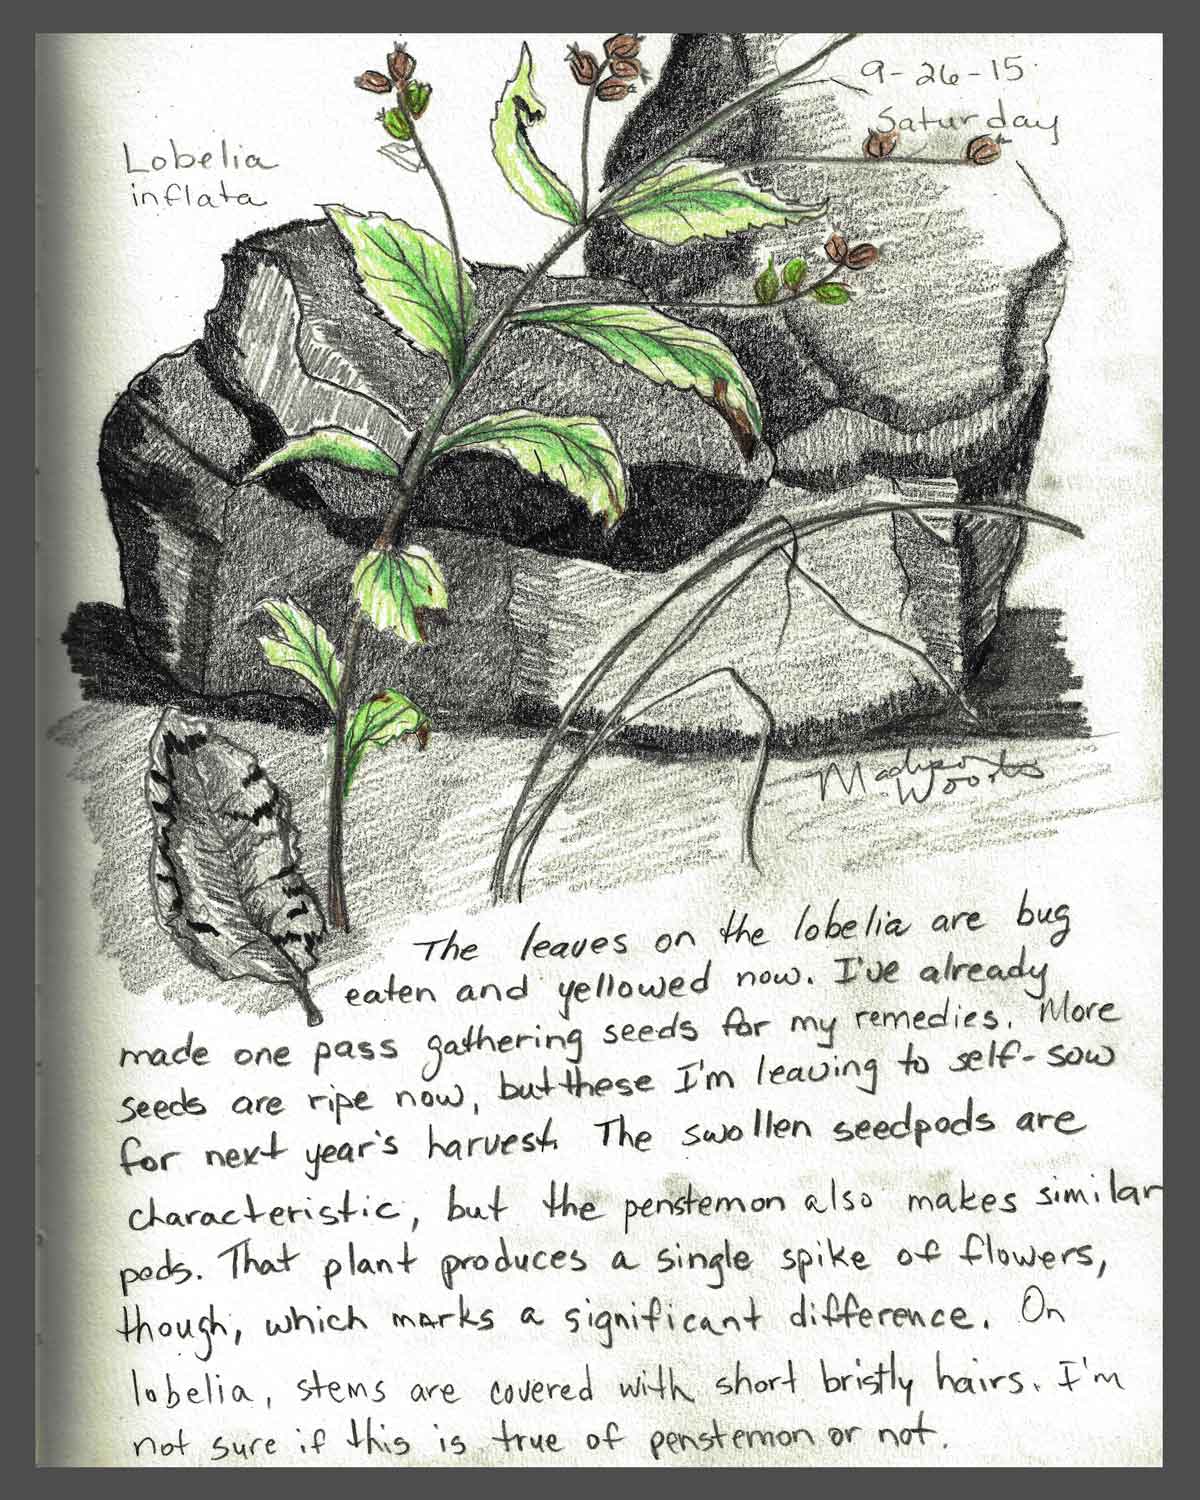 9-26-15
Saturday
Lobelia
inflata
Madison
Woods
The leaves on the lobelia are bug
eaten and yellowed now. I've already
made one pass gathering seeds for my remedies. More
seeds are ripe now, but these I'm leaving to self-sow
for next year's harvest. The swollen seedpods are
characteristic, but the penstemon also makes similar
pods. That plant produces a single spike of flowers,
though, which marks a significant difference. On
lobelia, stems are covered with short bristly hairs. I'm
not sure if this is true of penstemon or not.